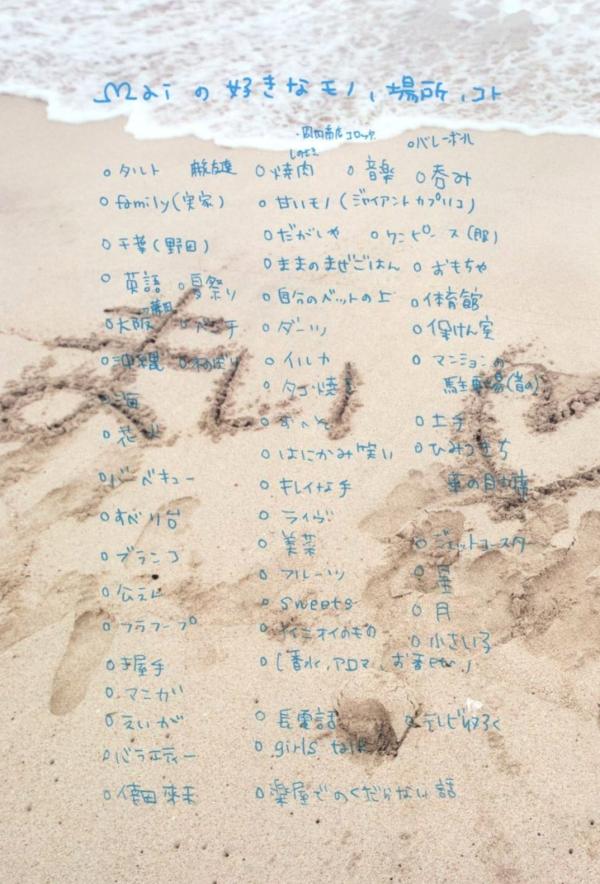 Maiの好きなモノ、場所、コト
・岡田商店コロッケ
○バレーボール
○タルト
○焼肉
○音楽
○呑み
○family(実家)
○甘いモノ(ジャイアントカプリコ)
○千葉(野田)
○だがしや
○ワンピース(服)
○英語
○夏祭り
○ままのまぜごはん
○おもちゃ
○自分のベットの上
○体育館
○大阪
○ダーツ
○保けん室
○沖縄
○木のぼり
○イルカ
○マンションの
駐車場(昔の)
○海
○タコ焼き
○花火
○土手
○バーベキュー
○はにかみ笑い
○ひみつきち
○すべり台
○キレイな手
○ブランコ
○ライヴ
○ジェットコースター
○公えん
○美菜
○星
○フラフープ
○フルーツ
○月
○sweets
○小さいころ
○イイニオイのもの
(香水、アロマ、お香etc.)
○土屋手
○マンガ
○えいが
○長電話
○テレビ
○バラエティー
○girls talk
○倖田來未
○楽屋でのくだらない話
まい